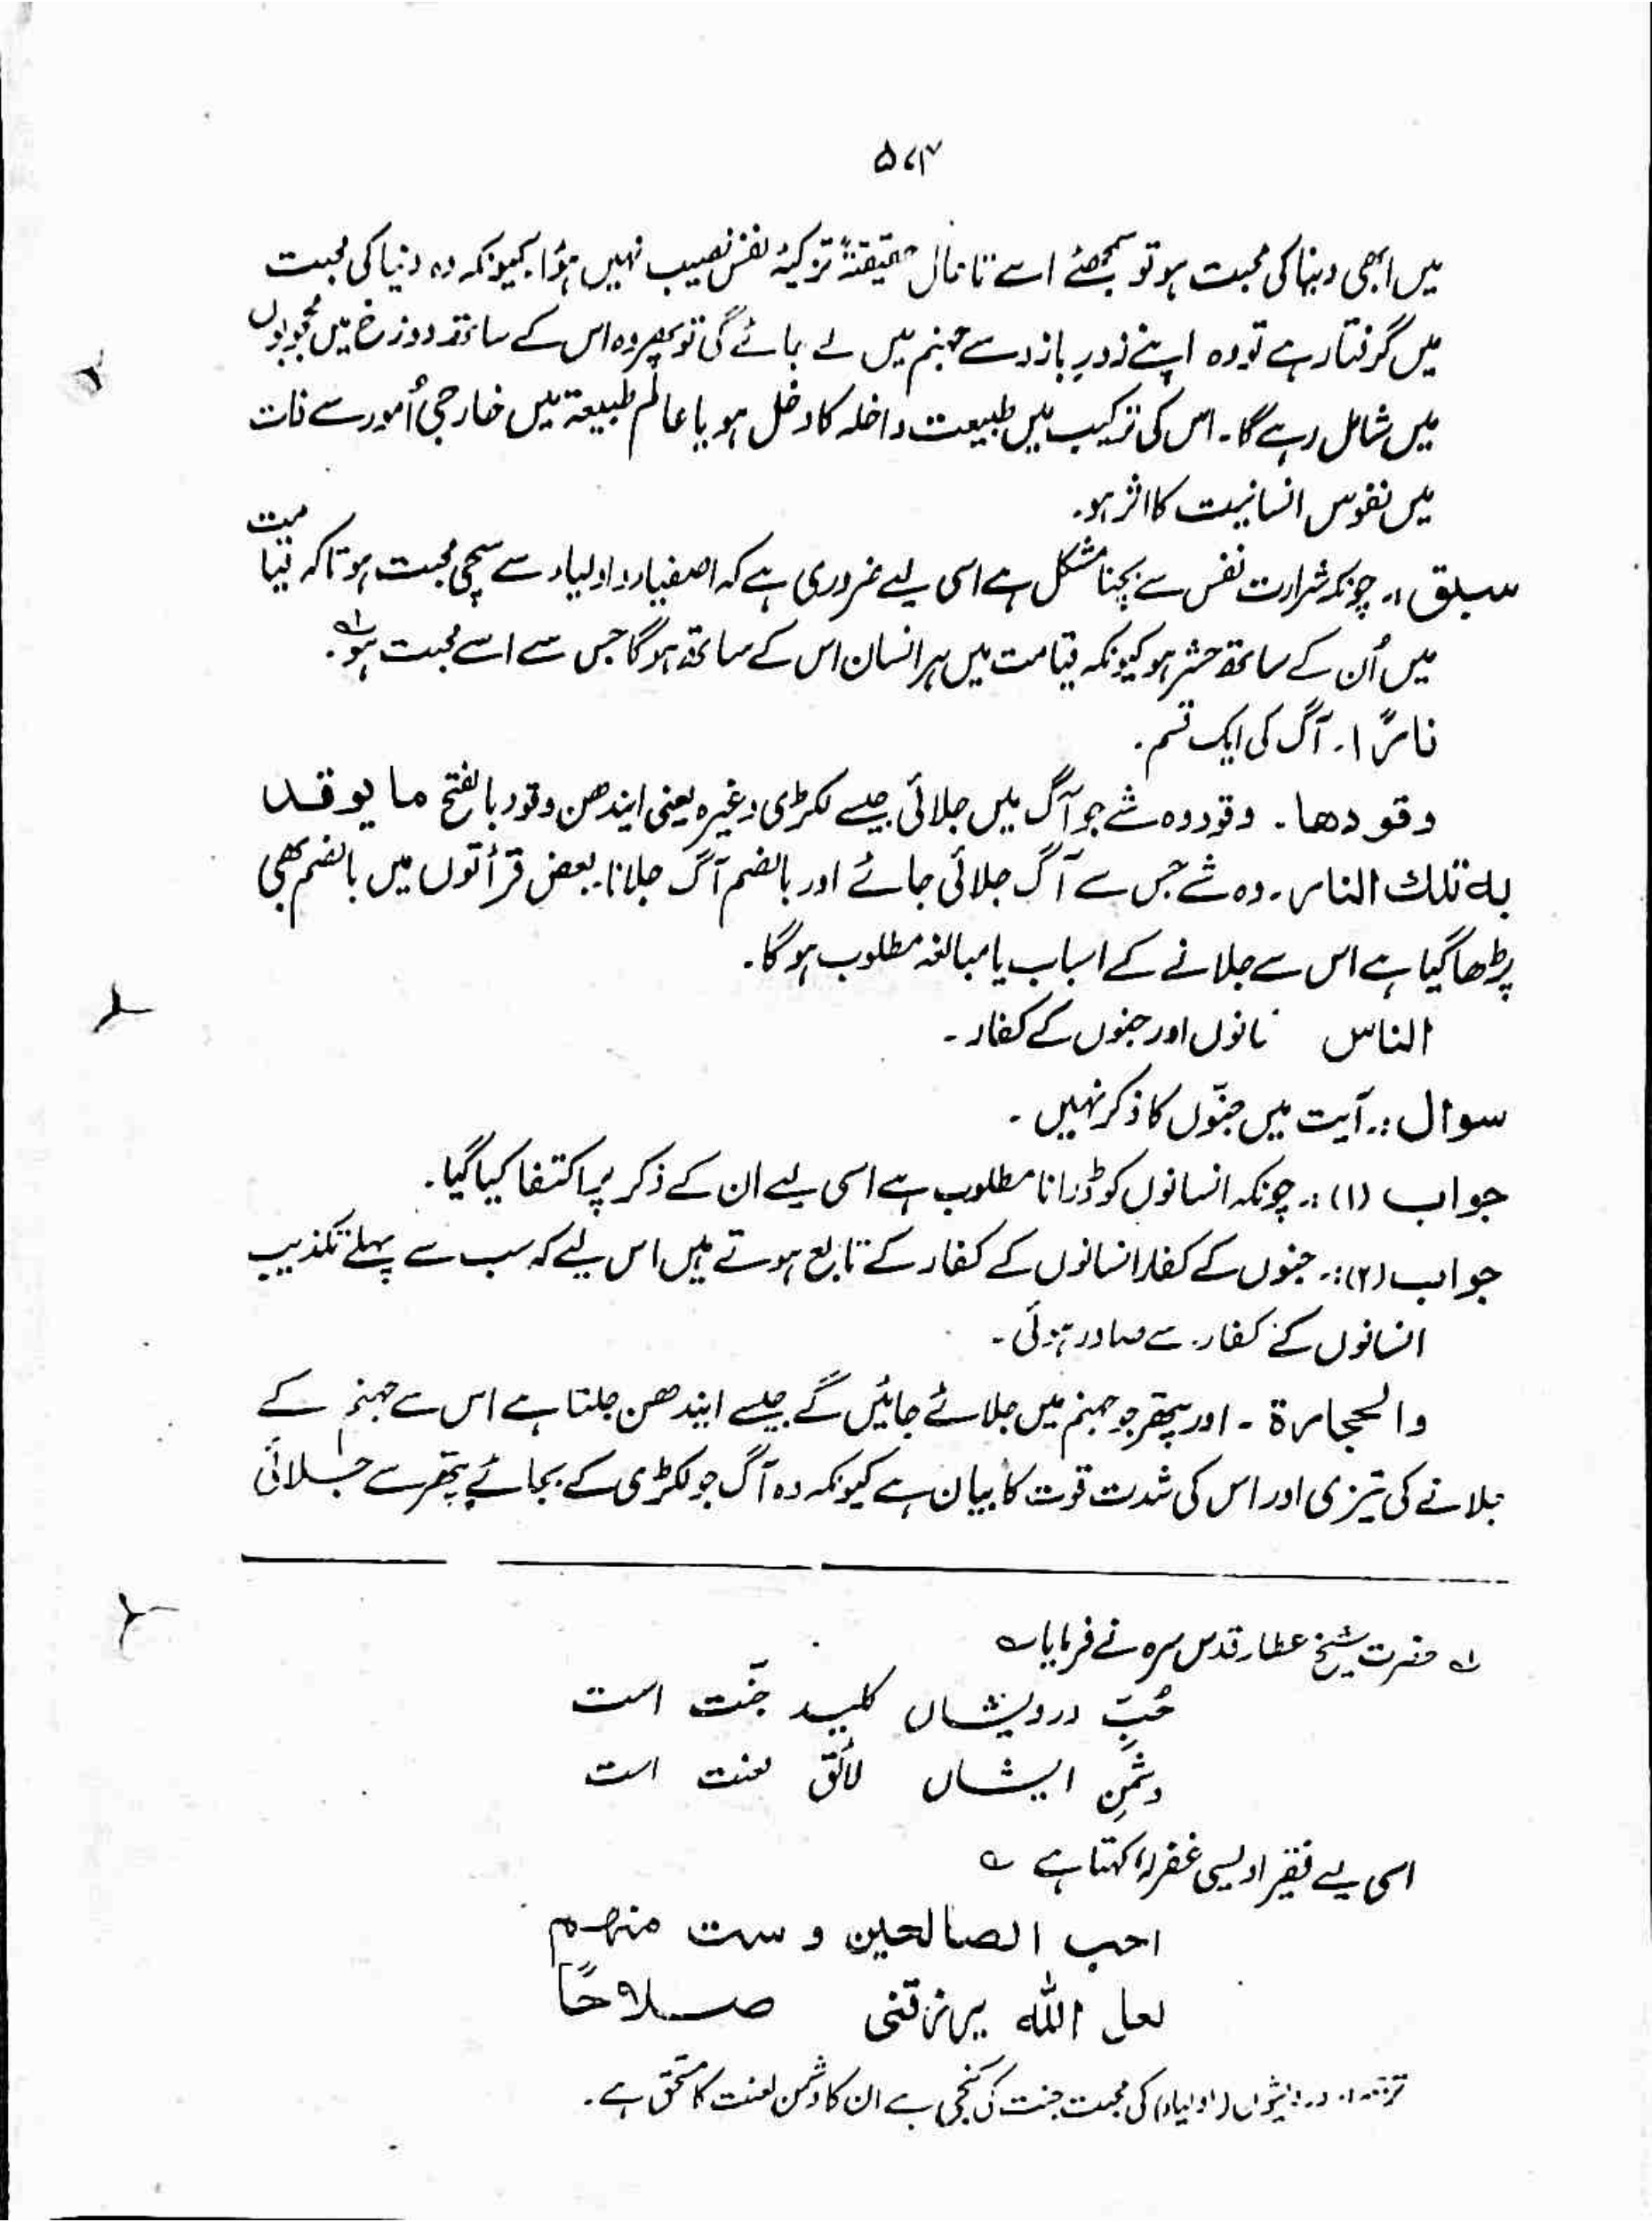 ۵۷۴
میں ابھی دینا کی محبت ہو تو سمجھئے اسے تا حال حقیقۃً تزکیۂ نفس نصیب نہیں ہؤا کیونکہ وہ دنیا کی محبت
میں گرفتار ہے تو وہ اپنے زورِ بازو سے جہنم میں لے جائے گی تو پھر وہ اس کے ساتھ دوزخ میں محجوبوں
میں شامل رہے گا۔ اس کی ترکیب میں طبیعت داخلہ کا دخل ہو یا عالم طبیعۃ میں خارجی اُمور سے ذات
میں نفوس انسانیت کا اثر ہو۔
سبق :۔ چونکہ شرارت نفس سے بچنا مشکل ہے اسی لیے ضروری ہے کہ اصفیاء و اولیاء سے سچی محبت ہو تاکہ قیامت
میں اُن کے ساتھ حشر ہو کیونکہ قیامت میں ہر انسان اس کے ساتھ ہو گا جس سے اسے محبت ہو لہ۔
نارًا۔ آگ کی ایک قسم۔
وقودھا۔ وقود وہ شے جو آگ میں جلائی جیسے لکڑی وغیرہ یعنی ایندھن وقود بالفتح ما یوقد
بہ تلک النار۔ وہ شے جس سے آگ جلائی جائے اور بالضم آگ جلانا۔ بعض قرأتوں میں بالضم بھی
پڑھا گیا ہے اس سے جلانے کے اسباب یا مبالغہ مطلوب ہو گا۔
الناس نانوں اور جنوں کے کفار۔
سوال :۔ آیت میں جنّوں کا ذکر نہیں۔
جواب (۱) :۔ چونکہ انسانوں کو ڈرانا مطلوب ہے اسی لیے ان کے ذکر پر اکتفا کیا گیا۔
جواب (۲) :۔ جنوں کے کفار انسانوں کے کفار کے تابع ہوتے ہیں اس لیے کہ سب سے پہلے تکذیب
انسانوں کے کفار سے صادر ہوئی۔
والحجارۃ۔ اور پتھر جو جہنم میں جلائے جائیں گے جیسے ایندھن جلتا ہے اس سے جہنم کے
جلانے کی تیزی اور اس کی شدت قوت کا بیان ہے کیونکہ وہ آگ جو لکڑی کے بجائے پتھر سے جلائی
لہ حضرت شیخ عطار قدس سرہ نے فرمایا ؎
حُبِّ درویشاں کلید جنّت است
دشمنِ ایشاں لائق لعنت است
اسی لیے فقیر اویسی غفرلہٗ کہتا ہے ؎
احب الصالحین و ست منہم
لعل اللہ یرزقنی صلاحًا
ترجمہ :۔ درویشوں (اولیاء) کی محبت جنت کی کنجی ہے ان کا دشمن لعنت کا مستحق ہے۔